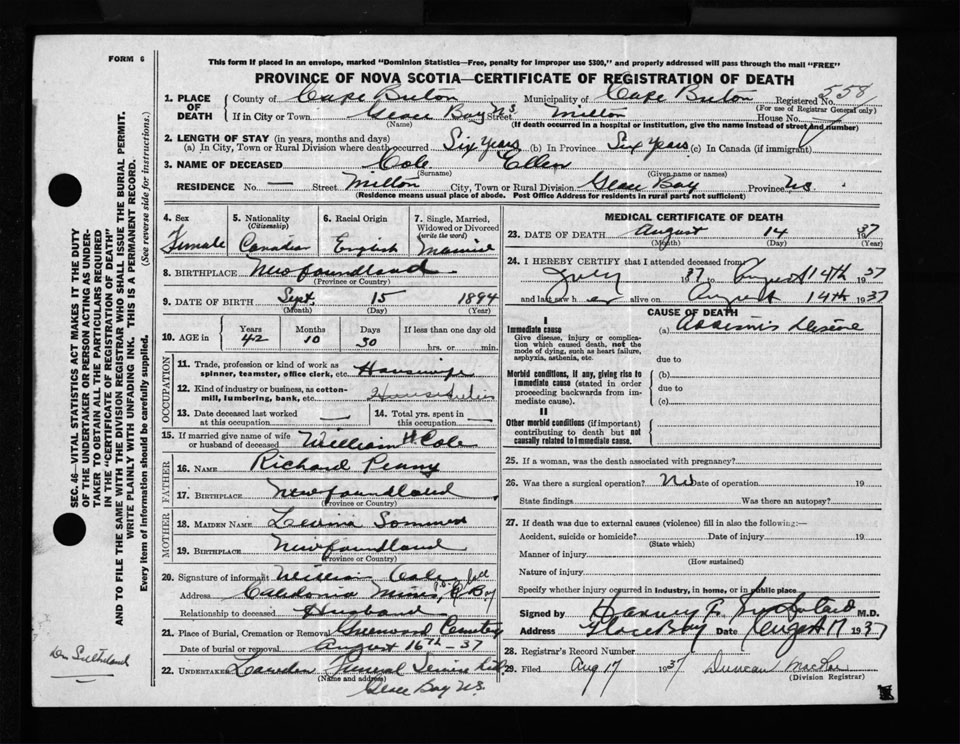 FORM 6
This form if placed in an envelope, marked "Dominion Statistics—Free, penalty for improper use $300," and properly addressed will pass through the mail "FREE"
PROVINCE OF NOVA SCOTIA—CERTIFICATE OF REGISTRATION OF DEATH
1. PLACE OF DEATH County of Cape Breton Municipality of Cape Breton Registered No. 558
(For use of Registrar General only)
If in City or Town Glace Bay N.S. Street Milton House No.
(Name) (If death occurred in a hospital or institution, give the name instead of street and number)
2. LENGTH OF STAY (in years, months and days)
(a) In City, Town or Rural Division where death occurred Six Years (b) In Province Six Years (c) In Canada (if immigrant)
3. NAME OF DECEASED Cole Ellen
(Surname) (Given name or names)
RESIDENCE No. — Street Milton City, Town or Rural Division Glace Bay Province N.S.
(Residence means usual place of abode. Post Office Address for residents in rural parts not sufficient)
4. Sex Female
5. Nationality (Citizenship) Canadian
6. Racial Origin English
7. Single, Married, Widowed or Divorced (write the word)
8. BIRTHPLACE Newfoundland
(Province or Country)
9. DATE OF BIRTH Sept. 15 1894
(Month) (Day) (Year)
10. AGE in Years 42 Months 10 Days 30 If less than one day old
hrs. or min.
OCCUPATION
11. Trade, profession or kind of work as spinner, teamster, office clerk, etc. Housewife
12. Kind of industry or business, as cotton-mill, lumbering, bank, etc.
13. Date deceased last worked at this occupation —
14. Total yrs. spent in this occupation —
15. If married give name of wife or husband of deceased William H. Cole
FATHER
16. NAME Richard Penny
17. BIRTHPLACE Newfoundland
(Province or Country)
MOTHER
18. MAIDEN NAME
19. BIRTHPLACE Newfoundland
(Province or Country)
20. Signature of informant William Cole
Address Caledonia Mines
Relationship to deceased Husband
21. Place of Burial, Cremation or Removal Greenwood Cemetery
Date of burial or removal August 16th – 37
22. UNDERTAKER Funeral Service
(Name and address)
Glace Bay N.S.
MEDICAL CERTIFICATE OF DEATH
23. DATE OF DEATH August 14 1937
(Month) (Day) (Year)
24. I HEREBY CERTIFY that I attended deceased from
July 37 to August 14th 1937
and last saw her alive on August 14th 1937
CAUSE OF DEATH
I
Immediate cause (a)
Give disease, injury or complication which caused death, not the mode of dying, such as heart failure, asphyxia, asthenia, etc.
due to
Morbid conditions, if any, giving rise to immediate cause (stated in order proceeding backwards from immediate cause).
(b)
due to
(c)
II
Other morbid conditions (if important) contributing to death but not causally related to immediate cause.
25. If a woman, was the death associated with pregnancy?
26. Was there a surgical operation? No Date of operation 19
State findings Was there an autopsy?
27. If death was due to external causes (violence) fill in also the following:—
Accident, suicide or homicide? Date of injury 19
(State which)
Manner of injury
(How sustained)
Nature of injury
Specify whether injury occurred in industry, in home, or in public place
Signed by Harvey F. Sutherland M.D.
Address Glace Bay Date August 17 1937
28. Registrar's Record Number
29. Filed Aug 17 1937 Duncan MacRae
(Division Registrar)
SEC. 46—VITAL STATISTICS ACT MAKES IT THE DUTY
OF THE UNDERTAKER OR PERSON ACTING AS UNDER-
TAKER TO OBTAIN ALL THE PARTICULARS REQUIRED
IN THE "CERTIFICATE OF REGISTRATION OF DEATH"
AND TO FILE THE SAME WITH THE DIVISION REGISTRAR WHO SHALL ISSUE THE BURIAL PERMIT.
WRITE PLAINLY WITH UNFADING INK. THIS IS A PERMANENT RECORD.
Every item of information should be carefully supplied. (See reverse side for instructions.)
Dr. Sutherland